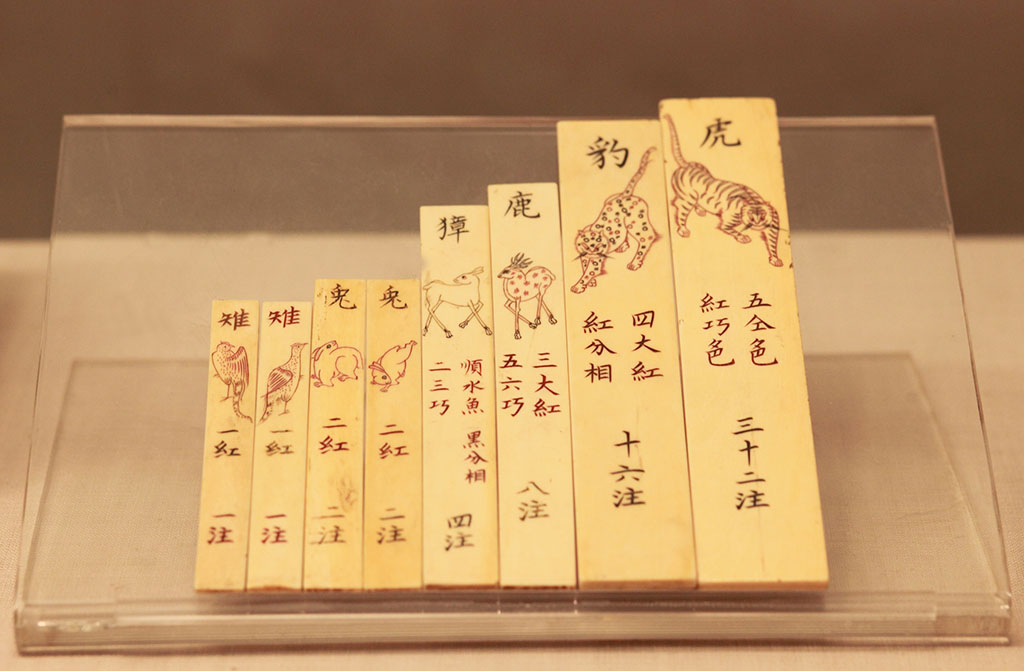 虎
五仝色
紅巧色
三十二注
豹
四大紅
紅分相
十六注
鹿
三大紅
五六巧
八注
獐
順水魚
黑分相
二三巧
四注
兔
二紅
二注
兔
二紅
二注
雉
一紅
一注
雉
一紅
一注